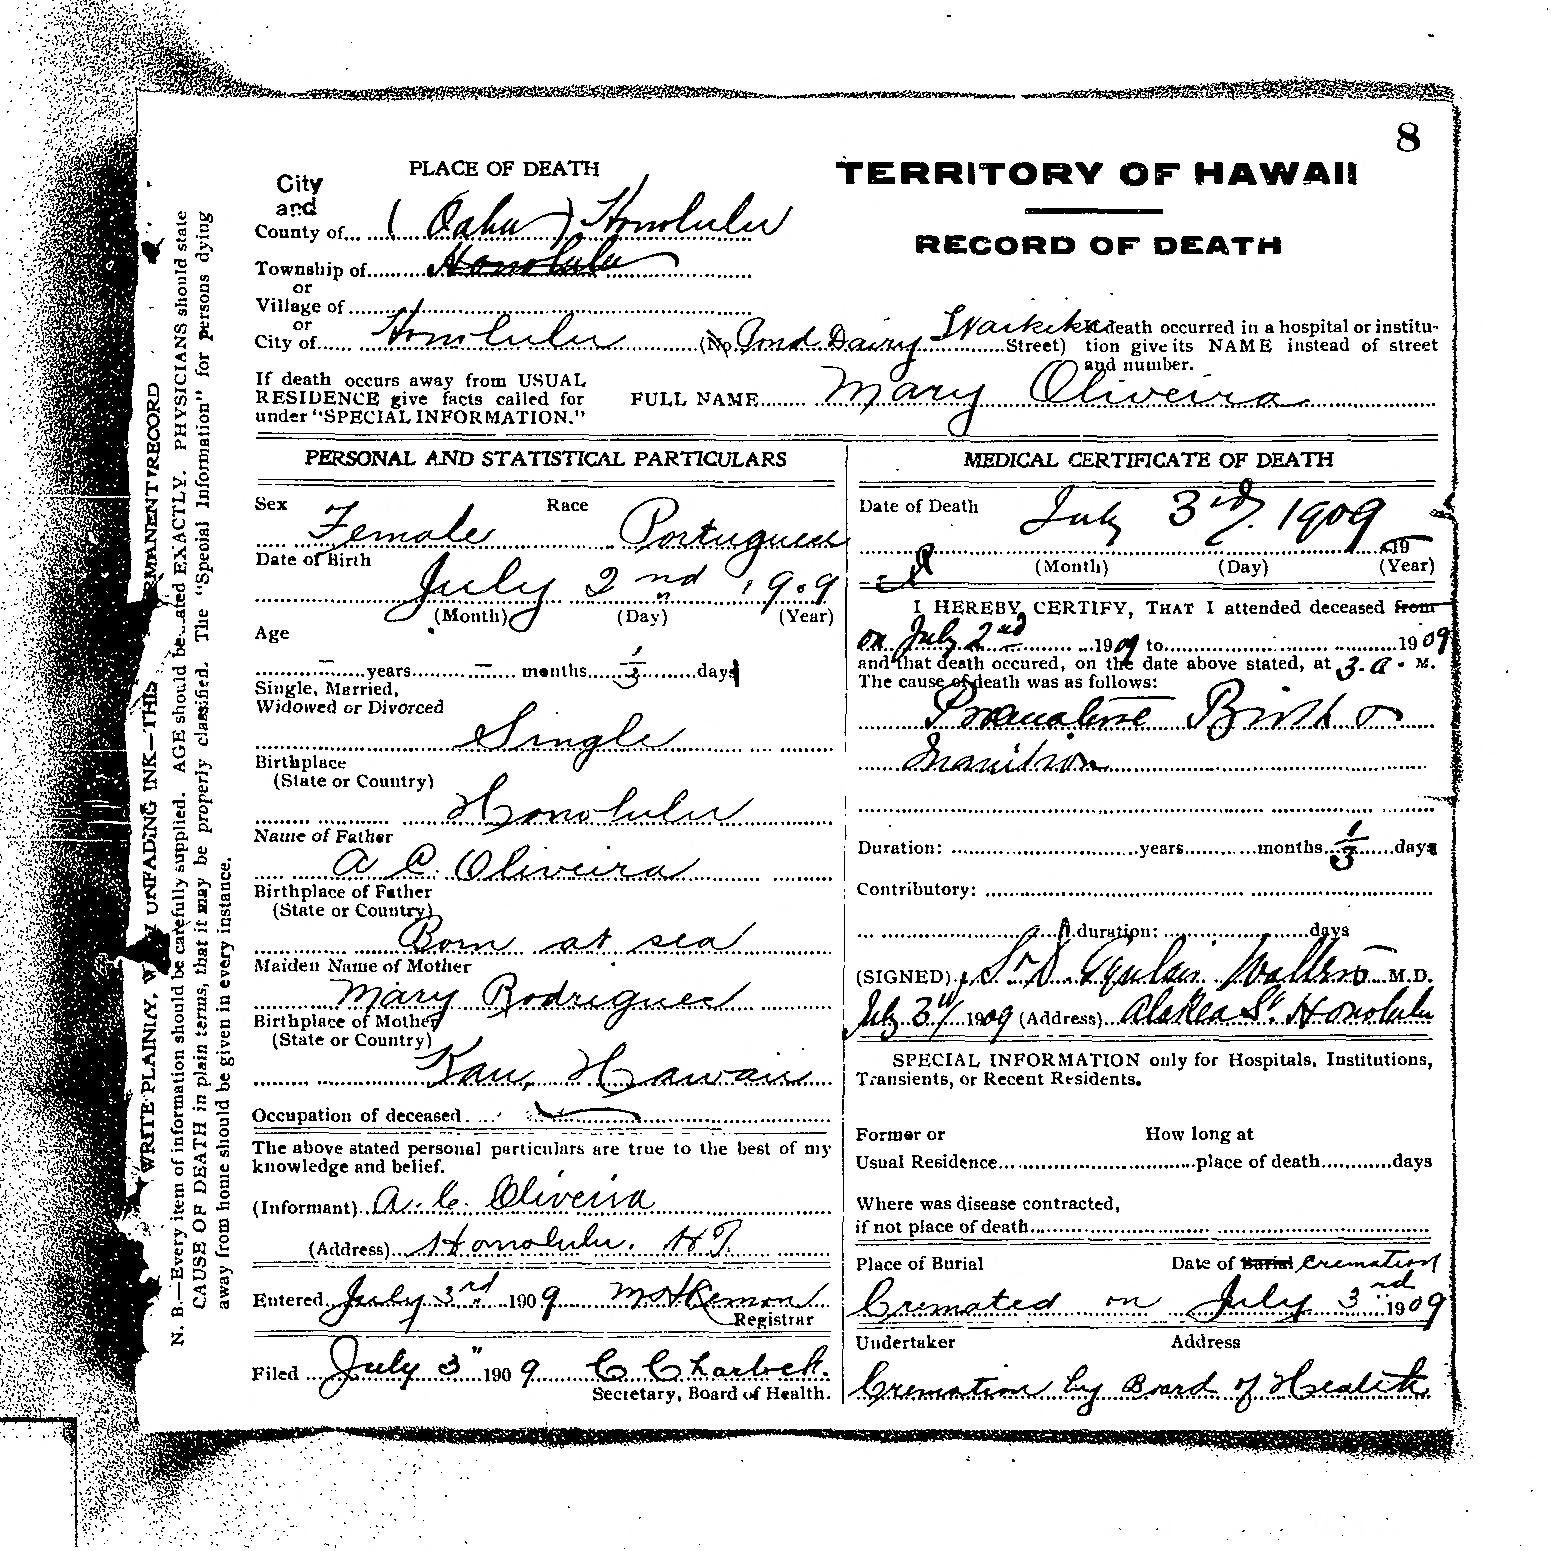 8
PLACE OF DEATH
TERRITORY OF HAWAII
RECORD OF DEATH
City
and
County of... (Oahu) Honolulu
Township of Honolulu
or
Village of
or
City of Honolulu (No. Pond Dairy Waikiki Street)
death occurred in a hospital or institu-
tion give its NAME instead of street
and number.
If death occurs away from USUAL
RESIDENCE give facts called for
under "SPECIAL INFORMATION."
FULL NAME Mary Oliveira
PERSONAL AND STATISTICAL PARTICULARS
Sex Female Race Portuguese
Date of Birth
July 2nd 1909
(Month) (Day) (Year)
Age
– years – months 1/3 days
Single, Married,
Widowed or Divorced
Single
Birthplace
(State or Country)
Honolulu
Name of Father
A C. Oliveira
Birthplace of Father
(State or Country)
Born at sea
Maiden Name of Mother
Mary Rodrigues
Birthplace of Mother
(State or Country)
Kau, Hawaii
Occupation of deceased
The above stated personal particulars are true to the best of my
knowledge and belief.
(Informant) A. C. Oliveira
(Address) Honolulu. H.T.
Entered July 3rd 1909
Registrar
Filed July 3" 1909 C Charlock.
Secretary, Board of Health.
MEDICAL CERTIFICATE OF DEATH
Date of Death July 3rd. 1909 19
(Month) (Day) (Year)
I HEREBY CERTIFY, THAT I attended deceased from
on July 2nd 1909 to 1909
and that death occured, on the date above stated, at 3. a. M.
The cause of death was as follows:
Premature Birth
Inanition
Duration: years months 1/3 days
Contributory:
duration: days
(SIGNED) M.D.
July 3d/ 1909 (Address) Alakea St. Honolulu
SPECIAL INFORMATION only for Hospitals, Institutions,
Transients, or Recent Residents.
Former or How long at
Usual Residence place of death days
Where was disease contracted,
if not place of death
Place of Burial Date of Burial Cremation
Cremated on July 3rd 1909
Undertaker Address
Cremation by Board of Health
WRITE PLAINLY, UNFADING INK—THIS RECORD
N. B.—Every item of information should be carefully supplied. AGE should be stated EXACTLY. PHYSICIANS should state
CAUSE OF DEATH in plain terms, that it may be properly classified. The "Special Information" for persons dying
away from home should be given in every instance.